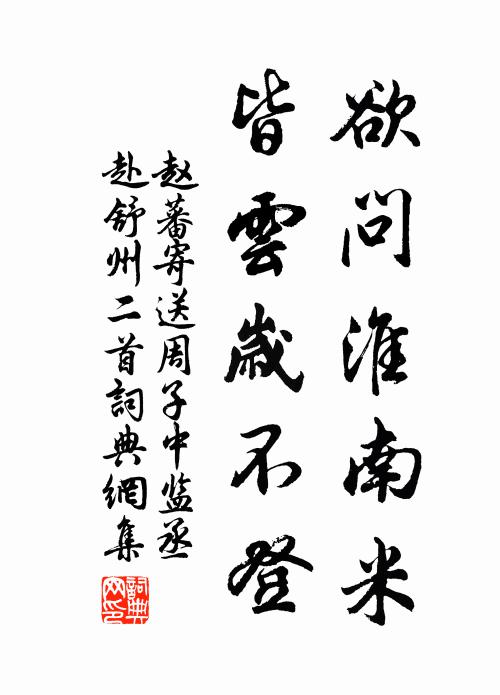 欲问淮南米
皆雲歲不登
赵蕃寄送周子中监丞
赴舒州二首詞典網集
詞典网印